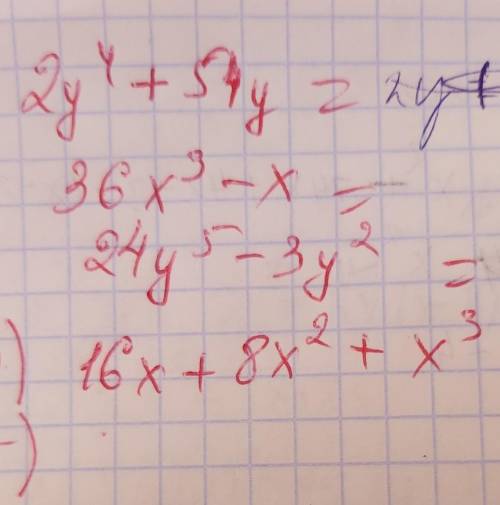 2y⁴ + 54y = 2y
36x³ - x =
24y⁵ - 3y² =
) 16x + 8x² + x³
)